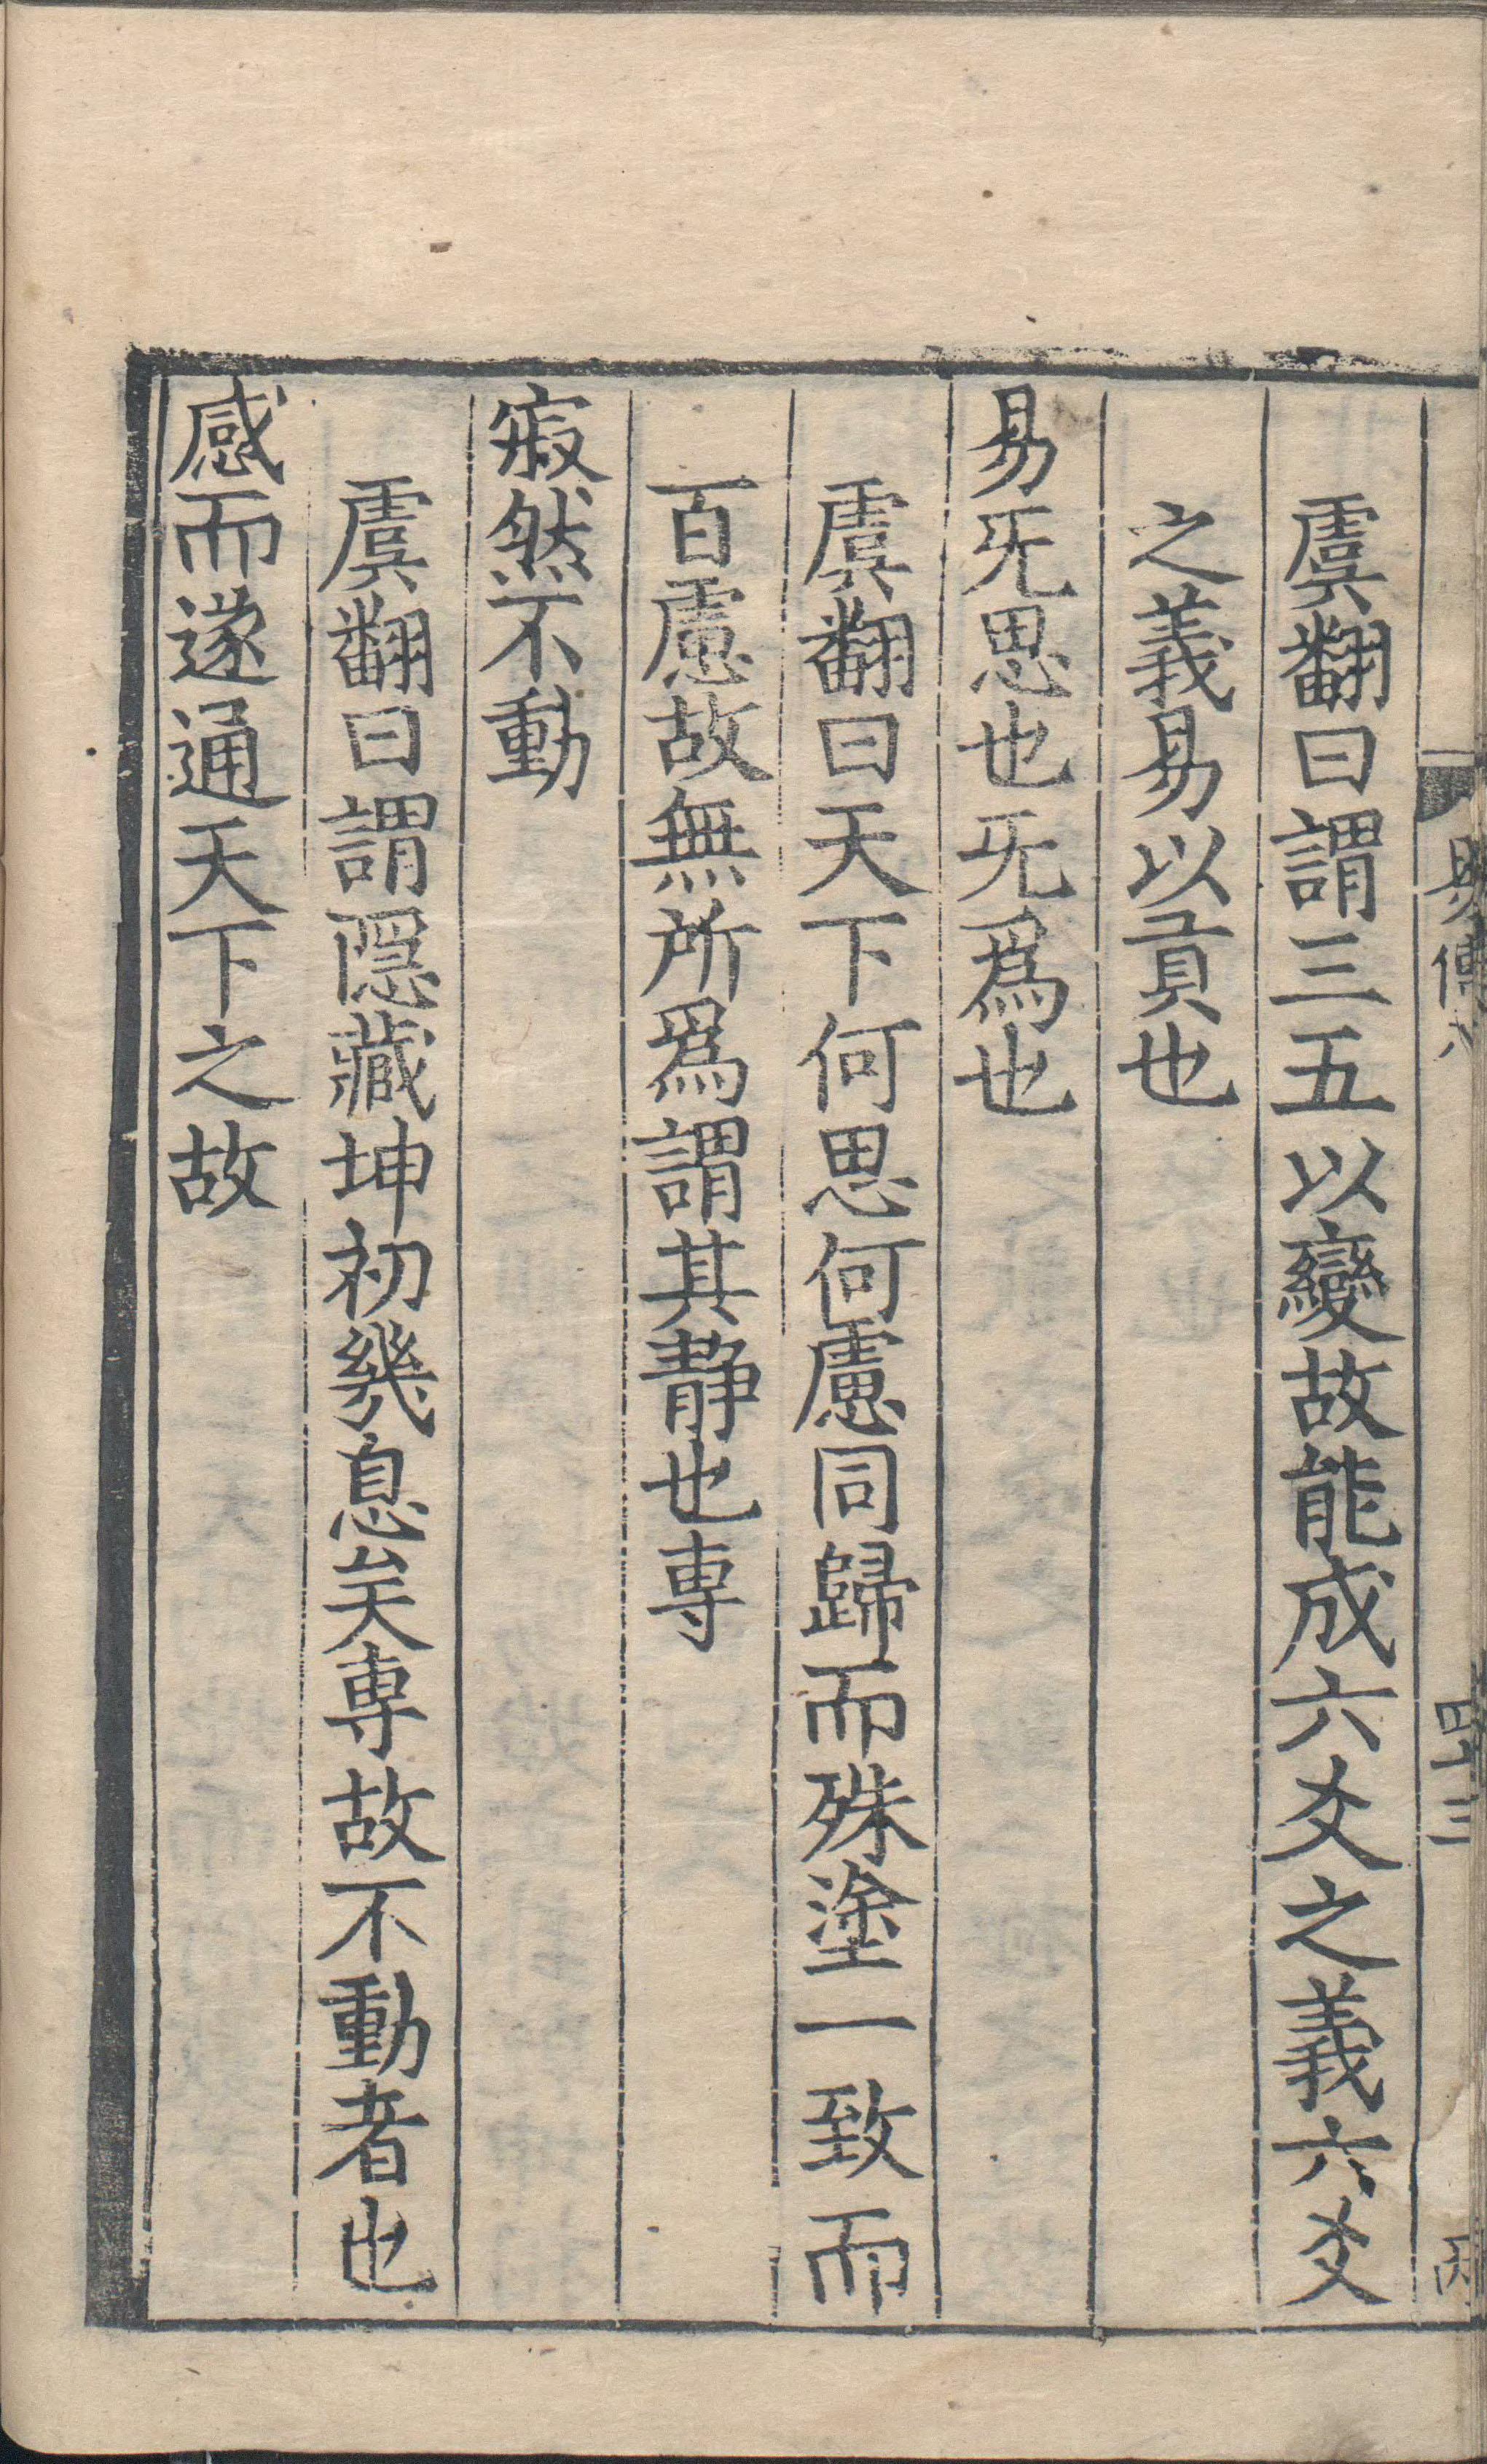 虞翻曰謂三五以變故能成六爻之義六爻
之義易以貢也
易旡思也旡爲也
虞翻曰天下何思何慮同歸而殊塗一致而
百慮故無所爲謂其静也専
寂然不動
虞翻曰謂隱藏坤初幾息矣専故不動者也
感而遂通天下之故
易傳
四十三